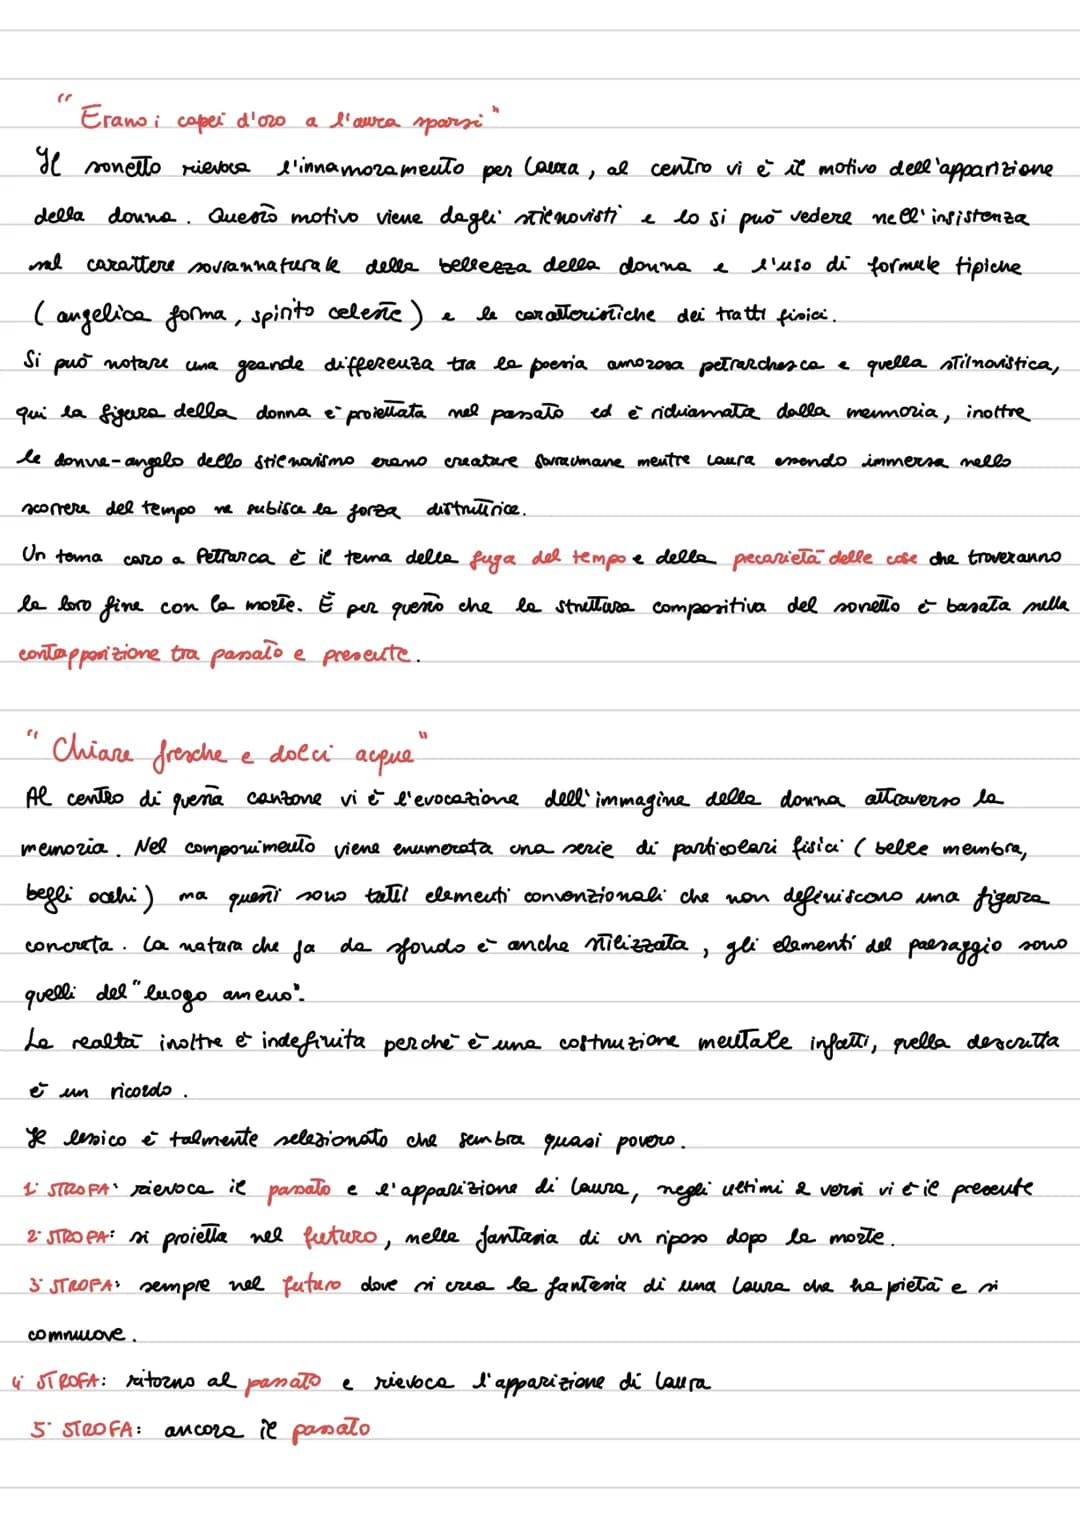 "Erano i capei d'oro a l'aura sparsi"
Il sonetto rievoca l'innamoramento per Laura, al centro vi è il motivo dell'apparizione
della donna. Questo motivo viene dagli stilnovisti e lo si può vedere nell'insistenza
sul carattere sovrannaturale della bellezza della donna e l'uso di formule tipiche
(angelica forma, spirito celeste) e le caratteristiche dei tratti fisici.
Si può notare una grande differenza tra la poesia amorosa petrarchesca e quella stilnovistica,
qui la figura della donna è proiettata nel passato ed è richiamata dalla memoria, inoltre
le donne-angelo dello stilnovismo erano creature sovraumane mentre Laura essendo immersa nello
scorrere del tempo ne subisce la forza distruttrice.
Un tema caro a Petrarca è il tema della fuga del tempo e della pecarietà delle cose che troveranno
la loro fine con la morte. È per questo che la struttura compositiva del sonetto è basata sulla
contapposizione tra passato e presente.
"Chiare fresche e dolci acque"
Al centro di questa canzone vi è l'evocazione dell'immagine della donna attraverso la
memoria. Nel componimento viene enumerata una serie di particolari fisici (belle membra,
begli occhi) ma questi sono tutti elementi convenzionali che non definiscono una figura
concreta. La natura che fa da sfondo è anche stilizzata, gli elementi del paesaggio sono
quelli del "luogo ameno".
La realtà inoltre è indefinita perché è una costruzione mentale infatti, quella descritta
è un ricordo.
Il lessico è talmente selezionato che sembra quasi povero.
1° STROFA: rievoca il passato e l'apparizione di Laura, negli ultimi 2 versi vi è il presente
2° STROFA: si proietta nel futuro, nella fantasia di un riposo dopo la morte.
3° STROFA: sempre nel futuro dove si crea la fantasia di una Laura che ha pietà e si
commuove.
4° STROFA: ritorno al passato e rievoca l'apparizione di Laura
5° STROFA: ancora il passato